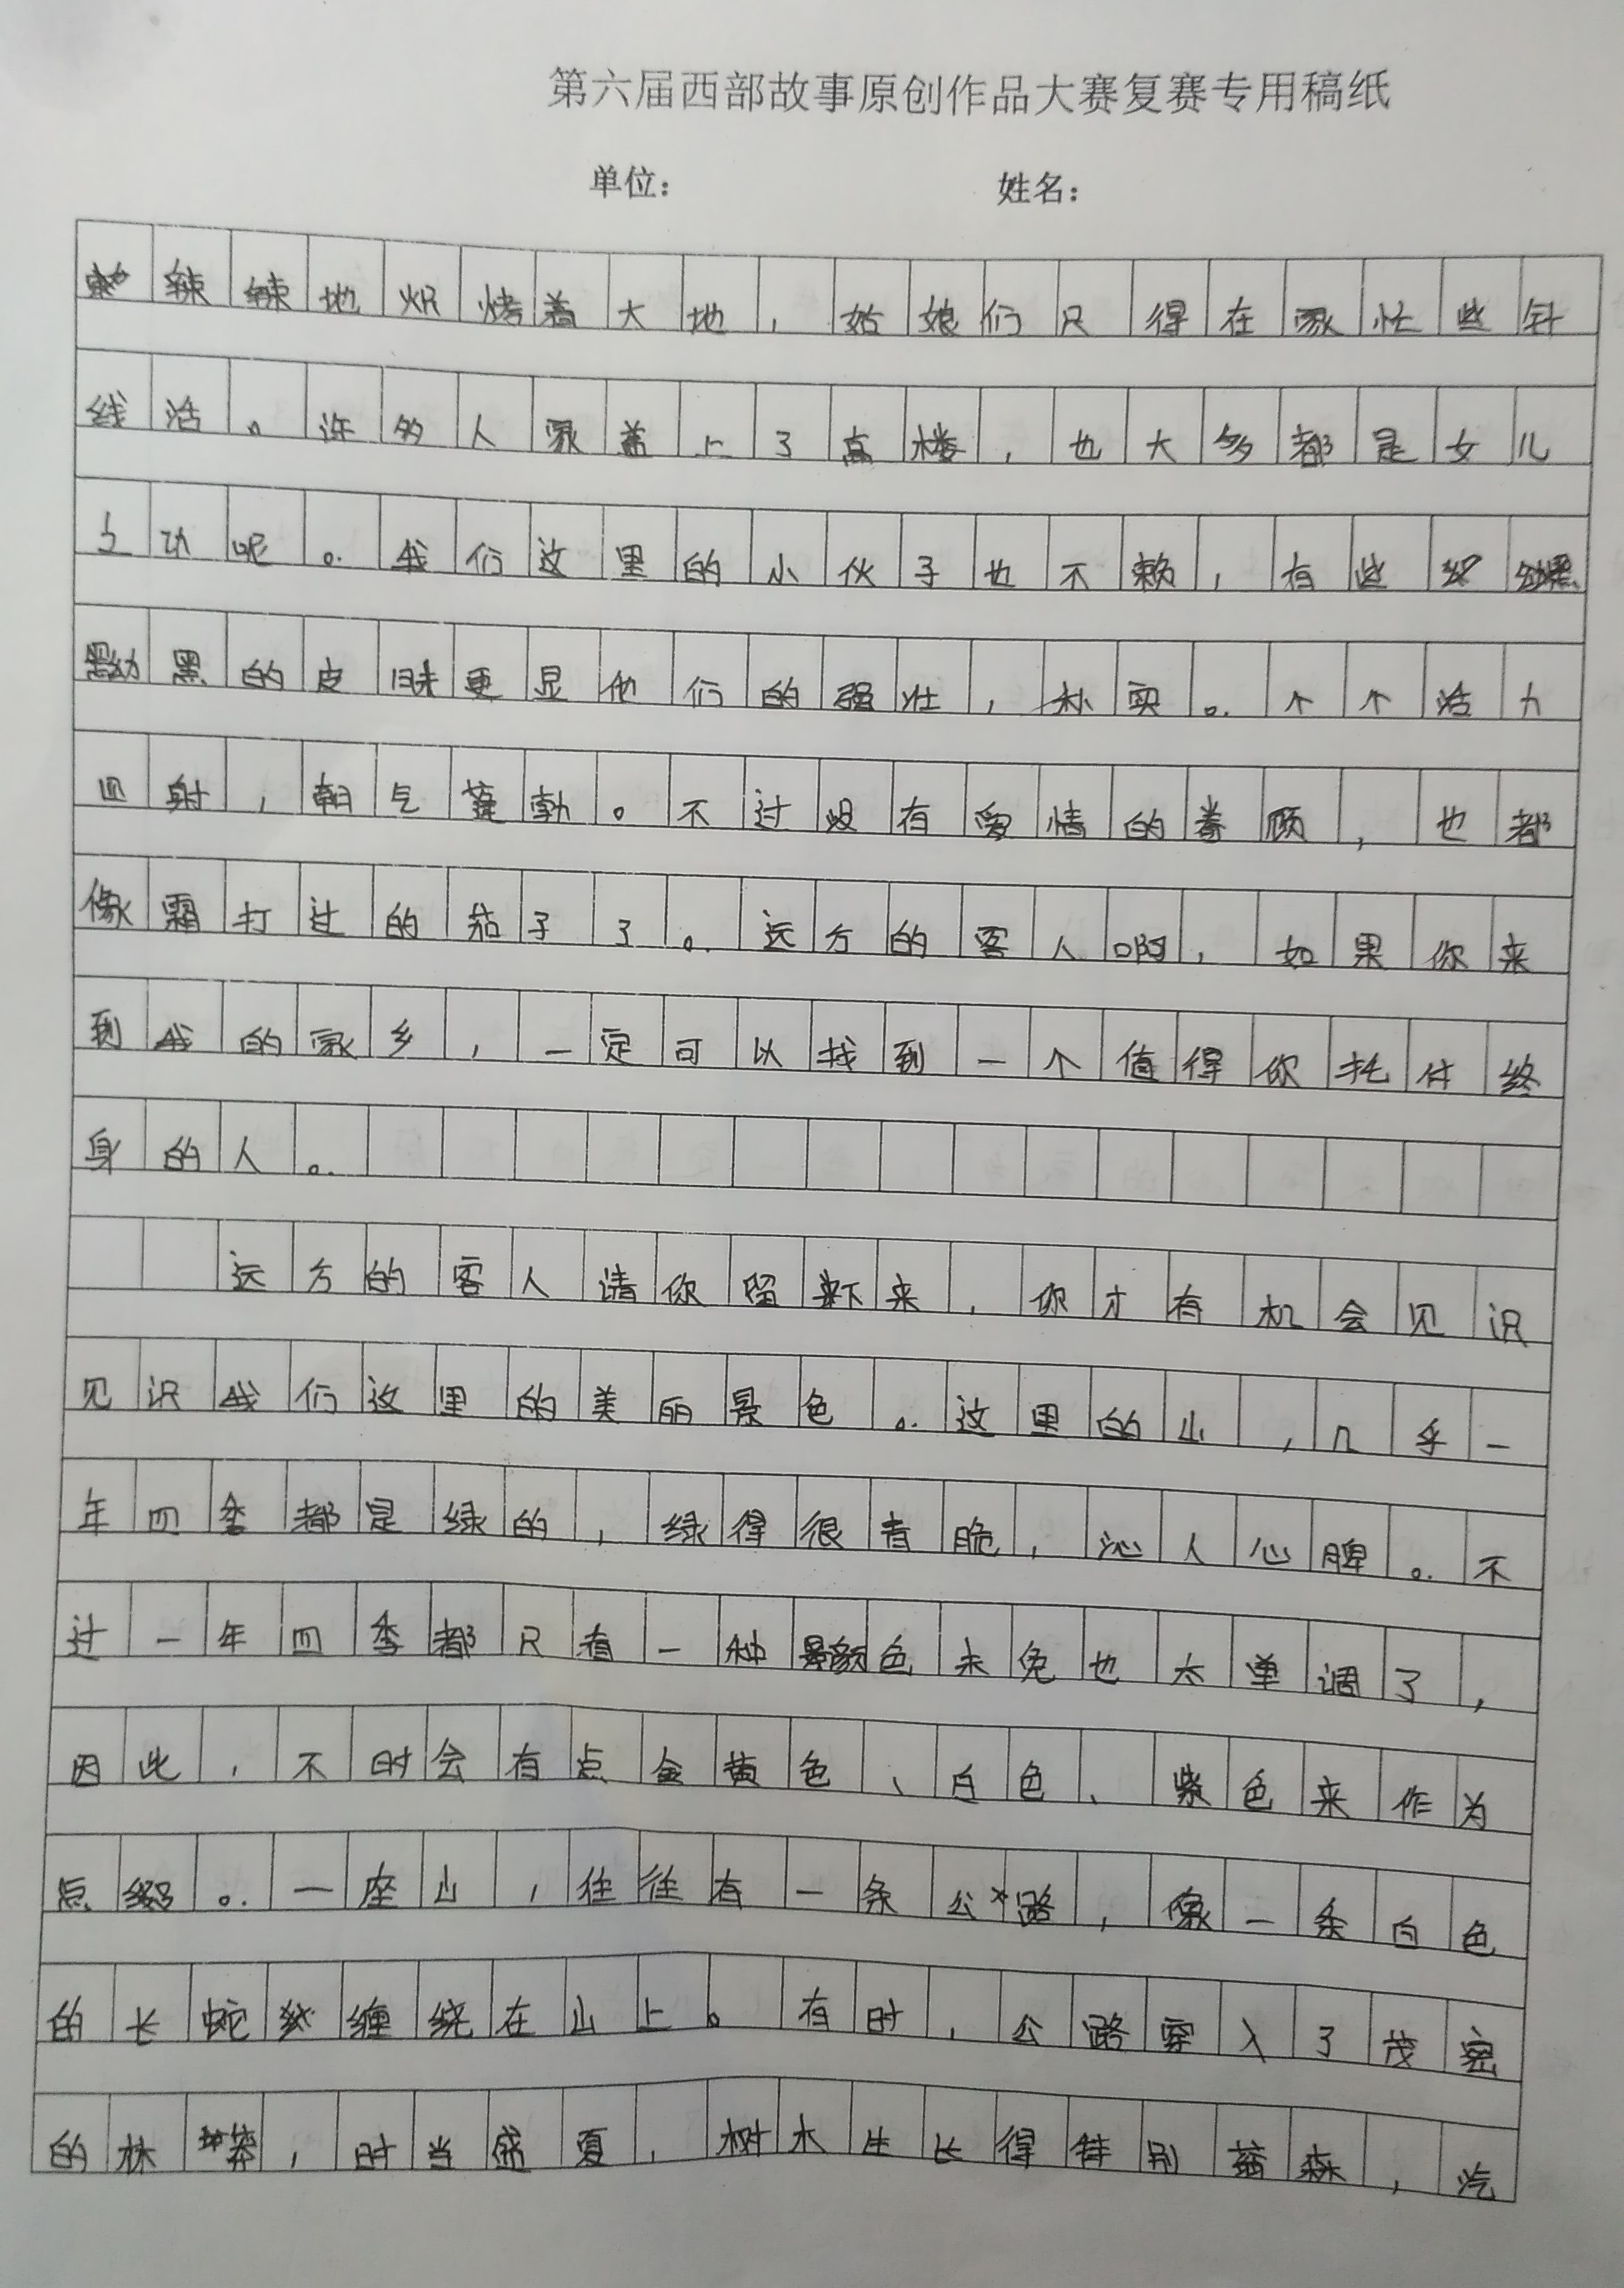 第六届西部故事原创作品大赛复赛专用稿纸
单位: 姓名:
辣辣地炽烤着大地,姑娘们只得在家忙些针
线活。许多人家盖上了高楼,也大多都是女儿
之功呢。我们这里的小伙子也不赖,有些
黝黑的皮肤更显他们的强壮,朴实。个个活力
四射,朝气蓬勃。不过没有爱情的眷顾,也都
像霜打过的茄子了。远方的客人啊,如果你来
到我的家乡,一定可以找到一个值得你托付终
身的人。
远方的客人请你留下来,你才有机会见识
见识我们这里的美丽景色。这里的山,几乎一
年四季都是绿的,绿得很青脆,沁人心脾。不
过一年四季都只有一种颜色未免也太单调了,
因此,不时会有点金黄色、白色、紫色来作为
点缀。一座山,往往有一条公路,像一条白色
的长蛇缠绕在山上。有时,公路穿入了茂密
的林莽,时当盛夏,树木生长得特别蓊森,汽